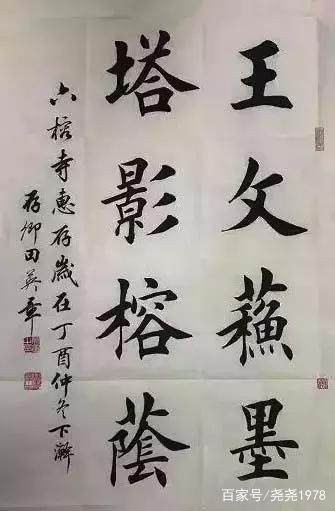 王文蘓墨
塔影榕蔭
六榕寺惠存歲在丁酉仲冬下澣
存卿田英章
百家号/尧尧1978